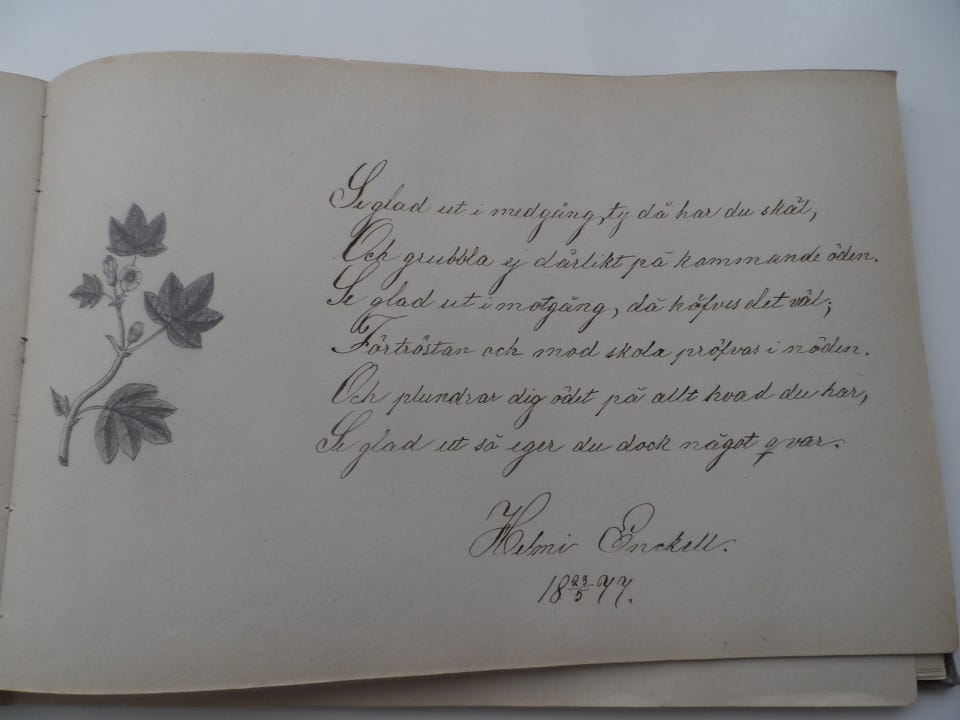 Se glad ut i medgång, ty då har du skäl,
Och grubbla ej dårlikt på kommande öden.
Se glad ut i motgång, då höfves det väl;
Förtröstan och mod skola pröfvas i nöden.
Och plundrar dig ödet på allt hvad du har,
Se glad ut så eger du dock något qvar.
Helmi Enckell.
18 23/5 77.